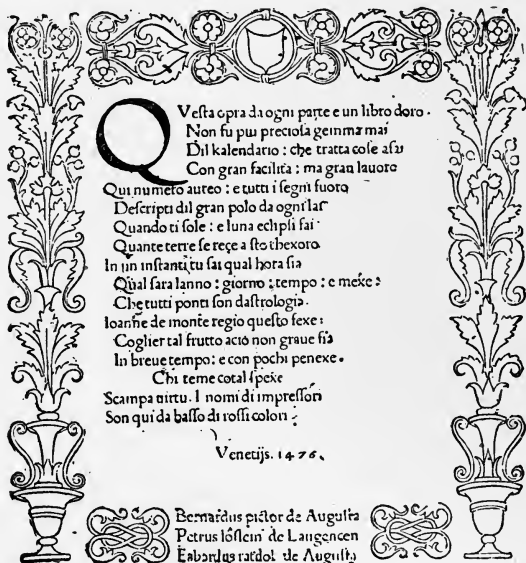 QVesta opra da ogni parte e un libro doro.
Non fu piu preciosa gemma mai
Dil kalendario: che tratta cose asai
Con gran facilita: ma gran lauoro
Qui numero aureo: e tutti i segni fuoro
Descripti dil gran polo da ogni lai
Quando ti sole: e luna eclipsi fai
Quante terre se rege a sto thexoro
In un instanti tu sai qual hora sia
Qual sara lanno: giorno: tempo: e mexe:
Che tutti ponti son dastrologia.
Ioanne de monte regio questo fexe:
Coglier tal frutto acio non graue sia
In breue tempo: e con pochi penexe.
Chi teme cotal spexe
Scampa uirtu. I nomi di impressori
Son qui da basso di rossi colori.
Venetijs. 1476.
Bernardus pictor de Augusta
Petrus löslein de Langencen
Erhardus ratdolt de Augusta